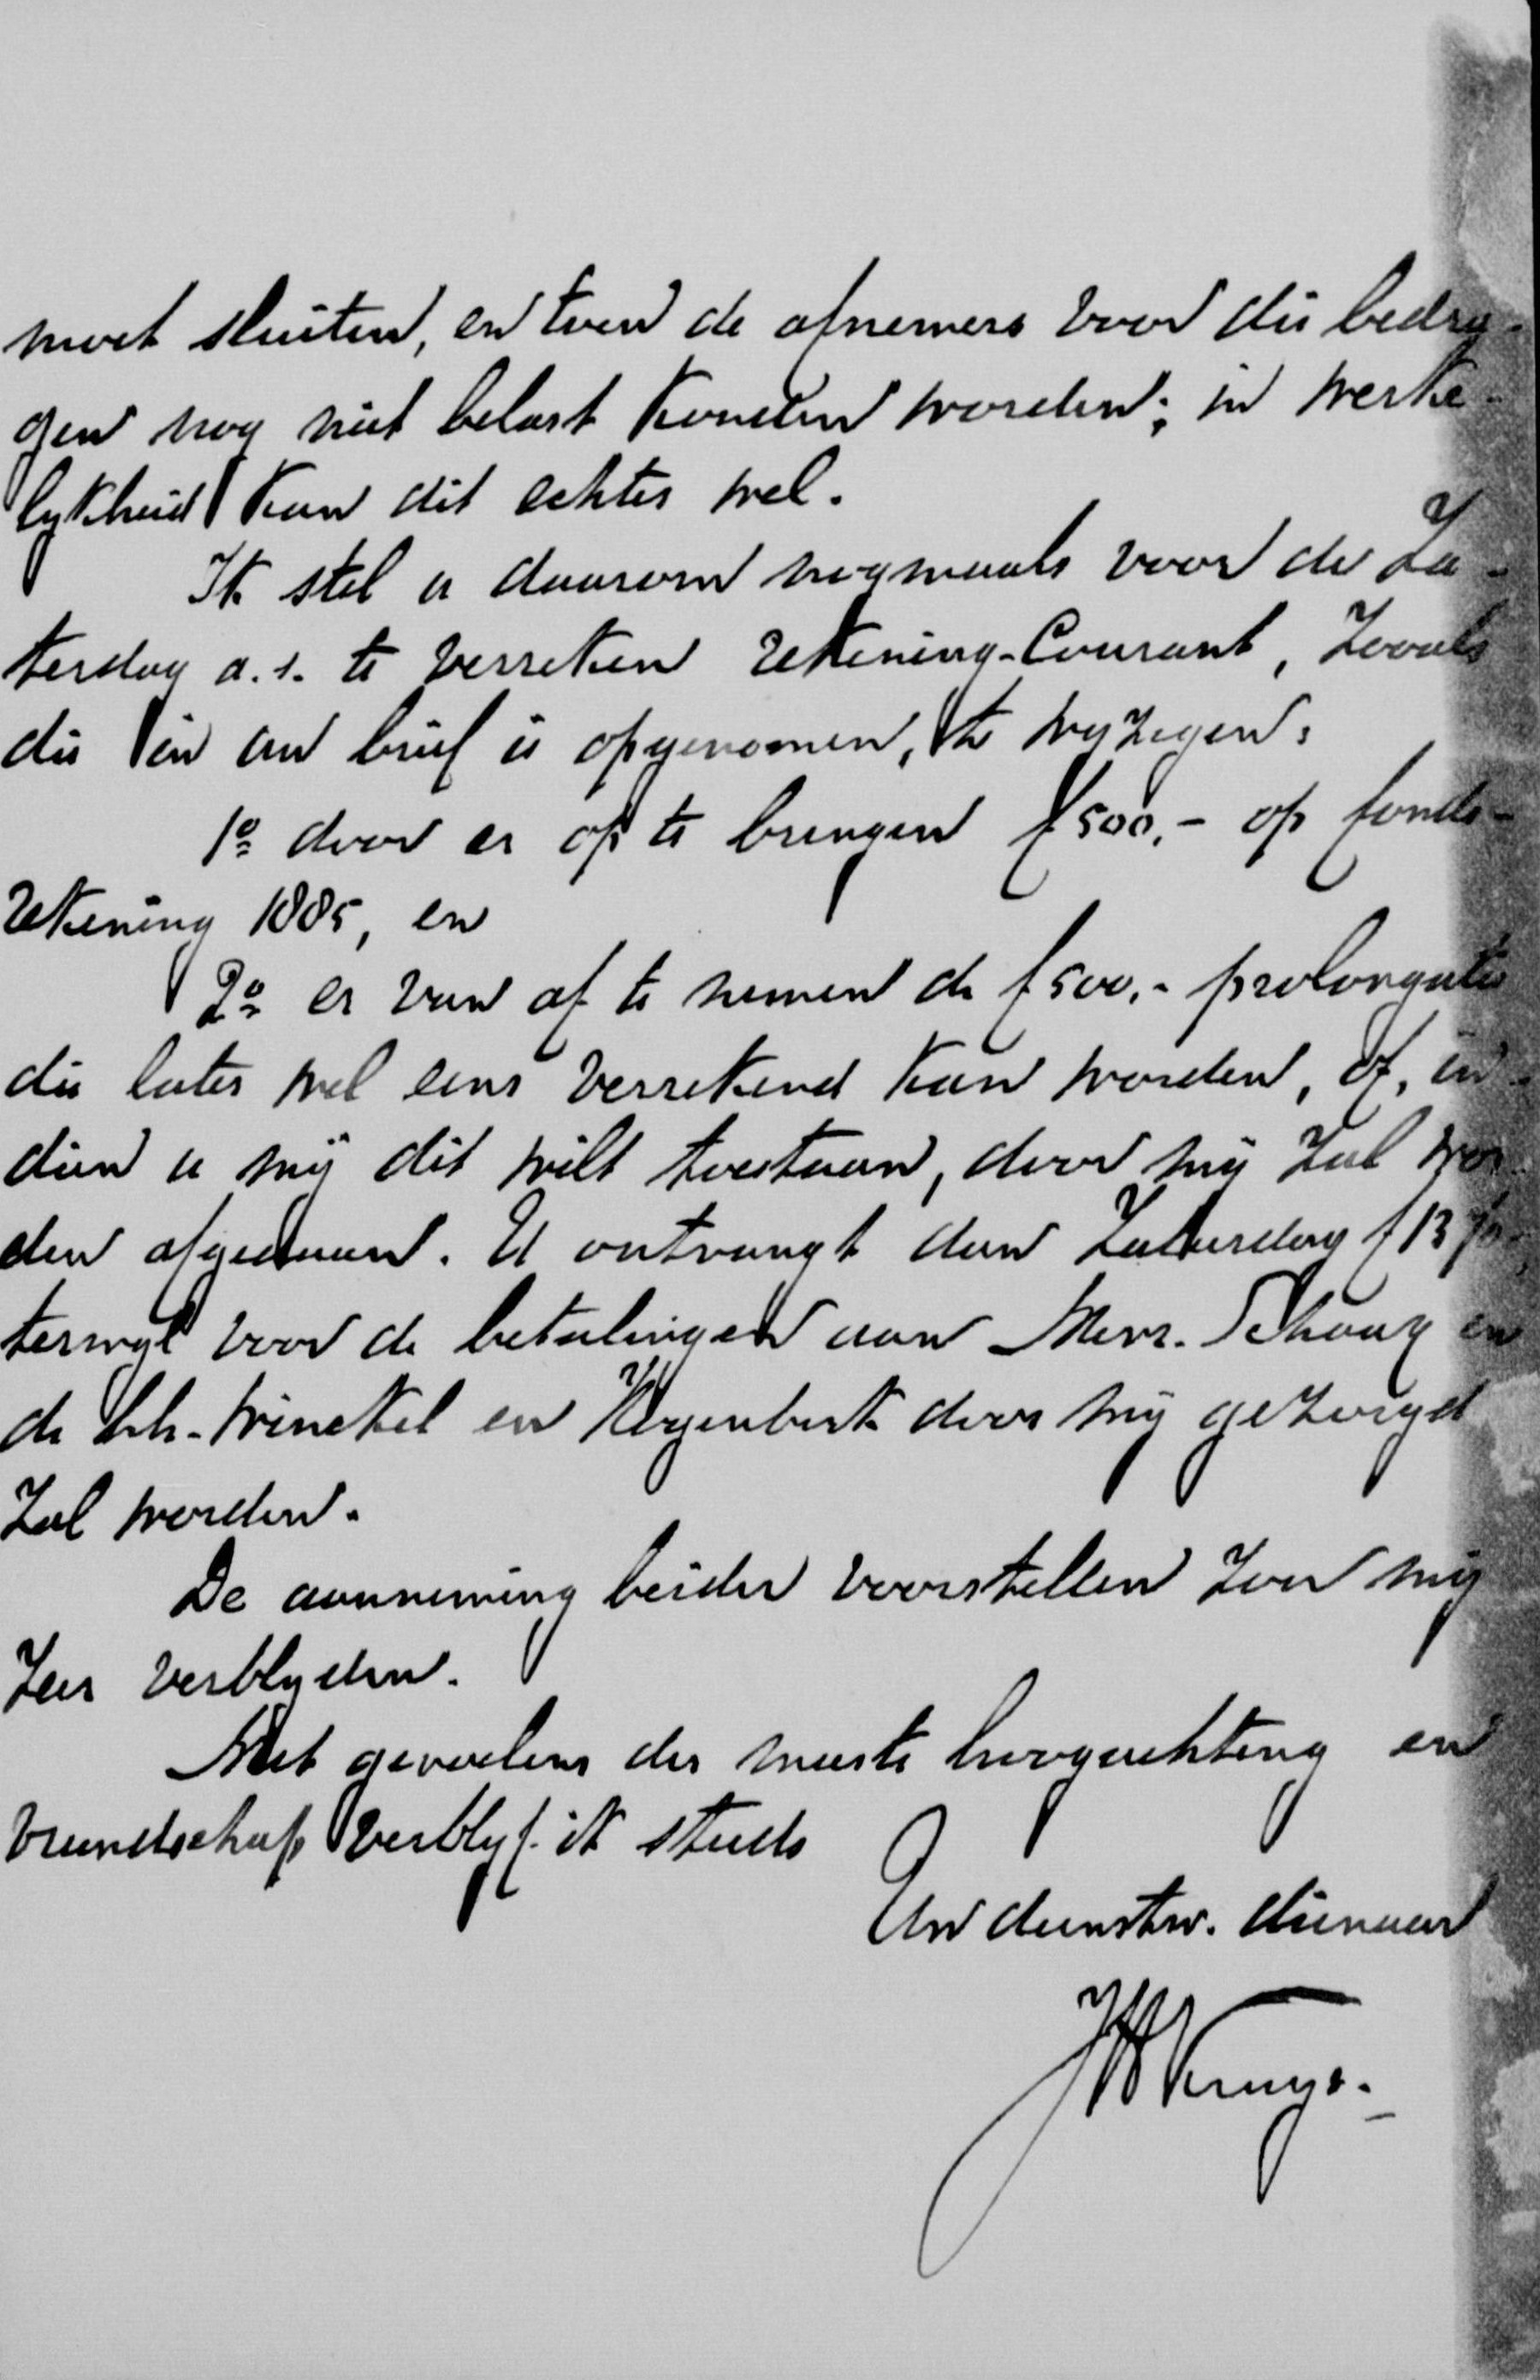 moet sluiten, en toen de afnemers voor die bedra-
gen nog niet belast konden worden; in werke-
lykheid kan dit echter wel.
Ik stel u daarom nogmaals voor de Za-
terdag a.s. te verreken rekening-Courant, zooals
die in uw brief is opgenomen, te wyzigen:
1º door er op te brengen f 500,- op fonds-
rekening 1885, en
2º er van af te nemen de f 500,- prolongatie
die later wel eens verrekend kan worden, of, in-
dien u mij dit wilt toestaan, door mij zal wor-
den afgedaan. U ontvangt dan Zaturdag
terwyl voor de betalingen aan Mevr. Schaay en
de hh. Winckel en door mij gezorgd
zal worden.
De aanneming beider voorstellen zou mij
zeer verblyden.
Met gevoelens der meeste hoogachting en
vriendschap verblyf ik steeds
Uw dienstw. dienaar